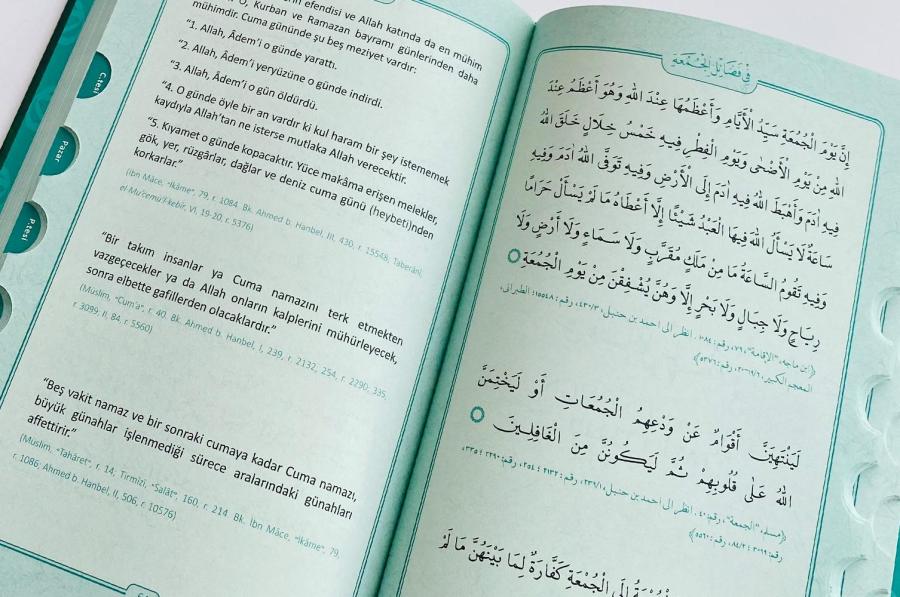 efendisi ve Allah katında da en mühim
O, Kurban ve Ramazan bayramı günlerinden daha
mühimdir. Cuma gününde şu beş meziyet vardır:
"1. Allah, Âdem'i o günde yarattı.
"2. Allah, Âdem'i yeryüzüne o günde indirdi.
"3. Allah, Âdem'i o gün öldürdü.
"4. O günde öyle bir an vardır ki kul haram bir şey istememek
kaydıyla Allah'tan ne isterse mutlaka Allah verecektir.
"5. Kıyamet o günde kopacaktır. Yüce makâma erişen melekler,
gök, yer, rüzgârlar, dağlar ve deniz cuma günü (heybeti)nden
korkarlar."
(İbn Mâce, "İkâme", 79, r. 1084. Bk. Ahmed b. Hanbel, III, 430, r. 15548; Taberânî,
el-Mu'cemu'l-kebîr, VI, 19-20, r. 5376)
"Bir takım insanlar ya Cuma namazını terk etmekten
vazgeçecekler ya da Allah onların kalplerini mühürleyecek,
sonra elbette gafillerden olacaklardır."
(Müslim, "Cum'a", r. 40. Bk. Ahmed b. Hanbel, I, 239, r. 2132, 254, r. 2290, 335,
r. 3099; II, 84, r. 5560)
"Beş vakit namaz ve bir sonraki cumaya kadar Cuma namazı,
büyük günahlar işlenmediği sürece aralarındaki günahları
affettirir."
(Müslim, "Tahâret", r. 14; Tirmizî, "Salât", 160, r. 214. Bk. İbn Mâce, "İkâme", 79,
r. 1086; Ahmed b. Hanbel, II, 506, r. 10576)
C.tesi
Pazar
P.tesi
فِي فَضَائِلِ الْجُمُعَةِ
إِنَّ يَوْمَ الْجُمُعَةِ سَيِّدُ الْأَيَّامِ وَأَعْظَمُهَا عِنْدَ اللهِ وَهُوَ أَعْظَمُ عِنْدَ
اللهِ مِنْ يَوْمِ الْأَضْحٰى وَيَوْمِ الْفِطْرِ فِيهِ خَمْسُ خِلَالٍ خَلَقَ اللهُ
فِيهِ اٰدَمَ وَأَهْبَطَ اللهُ فِيهِ اٰدَمَ إِلَى الْأَرْضِ وَفِيهِ تَوَفَّى اللهُ اٰدَمَ وَفِيهِ
سَاعَةٌ لَا يَسْأَلُ اللهَ فِيهَا الْعَبْدُ شَيْئًا إِلَّا أَعْطَاهُ مَا لَمْ يَسْأَلْ حَرَامًا
وَفِيهِ تَقُومُ السَّاعَةُ مَا مِنْ مَلَكٍ مُقَرَّبٍ وَلَا سَمَاءٍ وَلَا أَرْضٍ وَلَا
رِيَاحٍ وَلَا جِبَالٍ وَلَا بَحْرٍ إِلَّا وَهُنَّ يُشْفِقْنَ مِنْ يَوْمِ الْجُمُعَةِ
(ابن ماجه، "الإقامة"، ٧٩، رقم: ١٠٨٤. انظر الى احمد بن حنبل، ٤٣٠/٣، رقم: ١٥٥٤٨؛ الطبراني،
المعجم الكبير، رقم: ٥٣٧٦)
لَيَنْتَهِيَنَّ أَقْوَامٌ عَنْ وَدْعِهِمُ الْجُمُعَاتِ أَوْ لَيَخْتِمَنَّ
اللهُ عَلٰى قُلُوبِهِمْ ثُمَّ لَيَكُونُنَّ مِنَ الْغَافِلِينَ
"الجمعة"، رقم: ٤٠. انظر الى احمد بن حنبل، ٢٣٩/١، رقم: ٢١٣٢؛ ٢٥٤، رقم: ٢٢٩٠؛ ٣٣٥،
رقم: ٣٠٩٩؛ ٨٤/٢، رقم: ٥٥٦٠)
إِلَى الْجُمُعَةِ كَفَّارَةٌ لِمَا بَيْنَهُنَّ مَا لَمْ